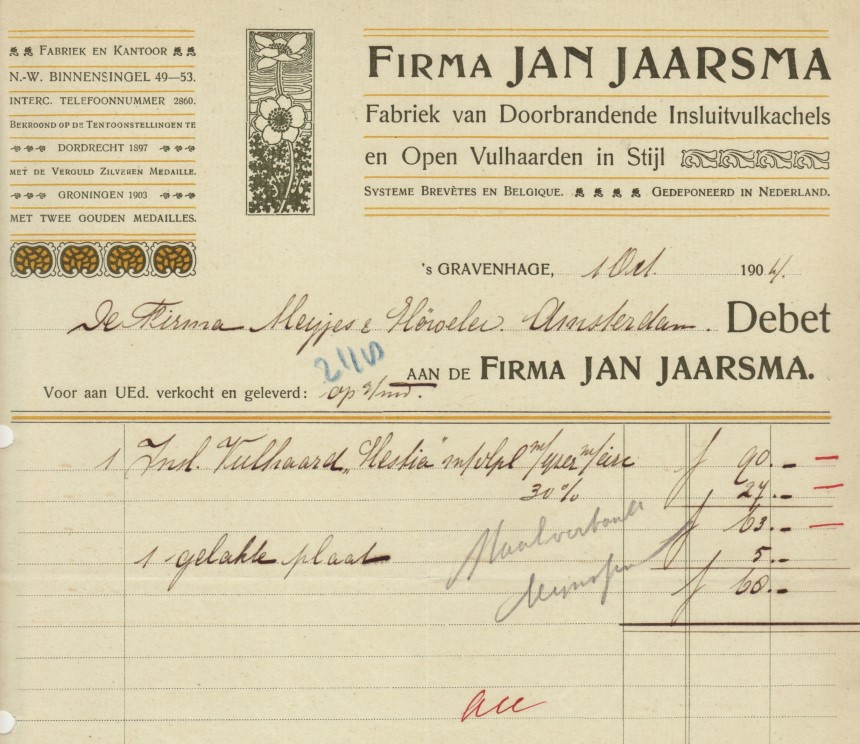 Fabriek en Kantoor
N.-W. BINNENSINGEL 49—53.
INTERC. TELEFOONNUMMER 2860.
Bekroond op de Tentoonstellingen te
DORDRECHT 1897
met de Verguld Zilveren Medaille.
GRONINGEN 1903
MET TWEE GOUDEN MEDAILLES.
FIRMA JAN JAARSMA
Fabriek van Doorbrandende Insluitvulkachels
en Open Vulhaarden in Stijl
Systeme Brevètes en Belgique. Gedeponeerd in Nederland.
's GRAVENHAGE, 1 Oct. 1904.
De Firma Meyjes & Höweler Amsterdam. Debet
AAN DE FIRMA JAN JAARSMA.
Voor aan UEd. verkocht en geleverd:
1 Insl. Vulhaard „Hestia" f 90.-
30% 27.-
f 63.-
1 gelakte plaat 5.-
f 68.-